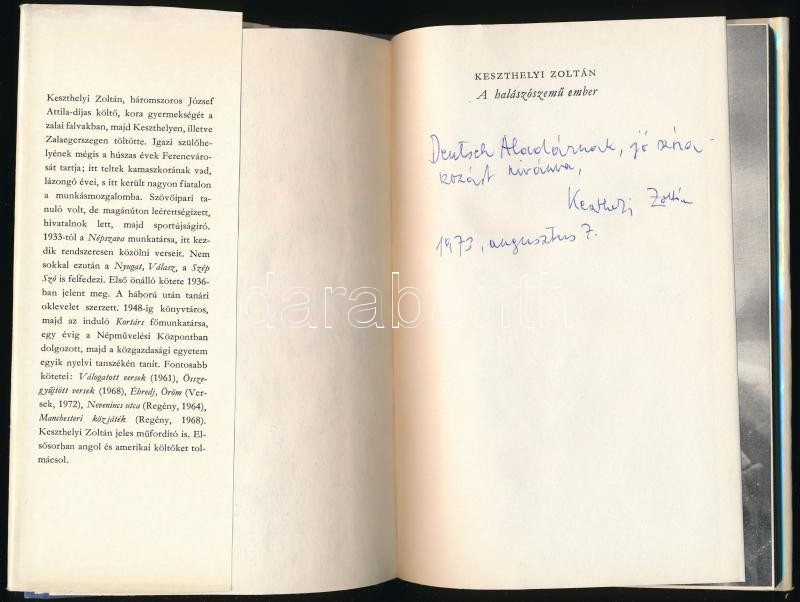 Keszthelyi Zoltán, háromszoros József
Attila-díjas költő, kora gyermekségét a
zalai falvakban, majd Keszthelyen, illetve
Zalaegerszegen töltötte. Igazi szülőhe-
lyének mégis a húszas évek Ferencváro-
sát tartja; itt teltek kamaszkorának vad,
lázongó évei, s itt került nagyon fiatalon
a munkásmozgalomba. Szövőipari ta-
nuló volt, de magánúton leérettségizett,
hivatalnok lett, majd sportújságíró.
1933-tól a Népszava munkatársa, itt kez-
dik rendszeresen közölni verseit. Nem
sokkal ezután a Nyugat, Válasz, a Szép
Szó is felfedezi. Első önálló kötete 1936-
ban jelent meg. A háború után tanári
oklevelet szerzett. 1948-ig könyvtáros,
majd az induló Kortárs főmunkatársa,
egy évig a Népművelési Központban
dolgozott, majd a közgazdasági egyetem
egyik nyelvi tanszékén tanít. Fontosabb
kötetei: Válogatott versek (1961), Össze-
gyűjtött versek (1968), Ébredj, Öröm (Ver-
sek, 1972), Nevenincs utca (Regény, 1964),
Manchesteri közjáték (Regény, 1968).
Keszthelyi Zoltán jeles műfordító is. El-
sősorban angol és amerikai költőket tol-
mácsol.
KESZTHELYI ZOLTÁN
A halászószemű ember
Deutsch Aladárnak, jó szóra-
kozást kívánva,
Keszthelyi Zoltán
1973, augusztus 7.
darabanth